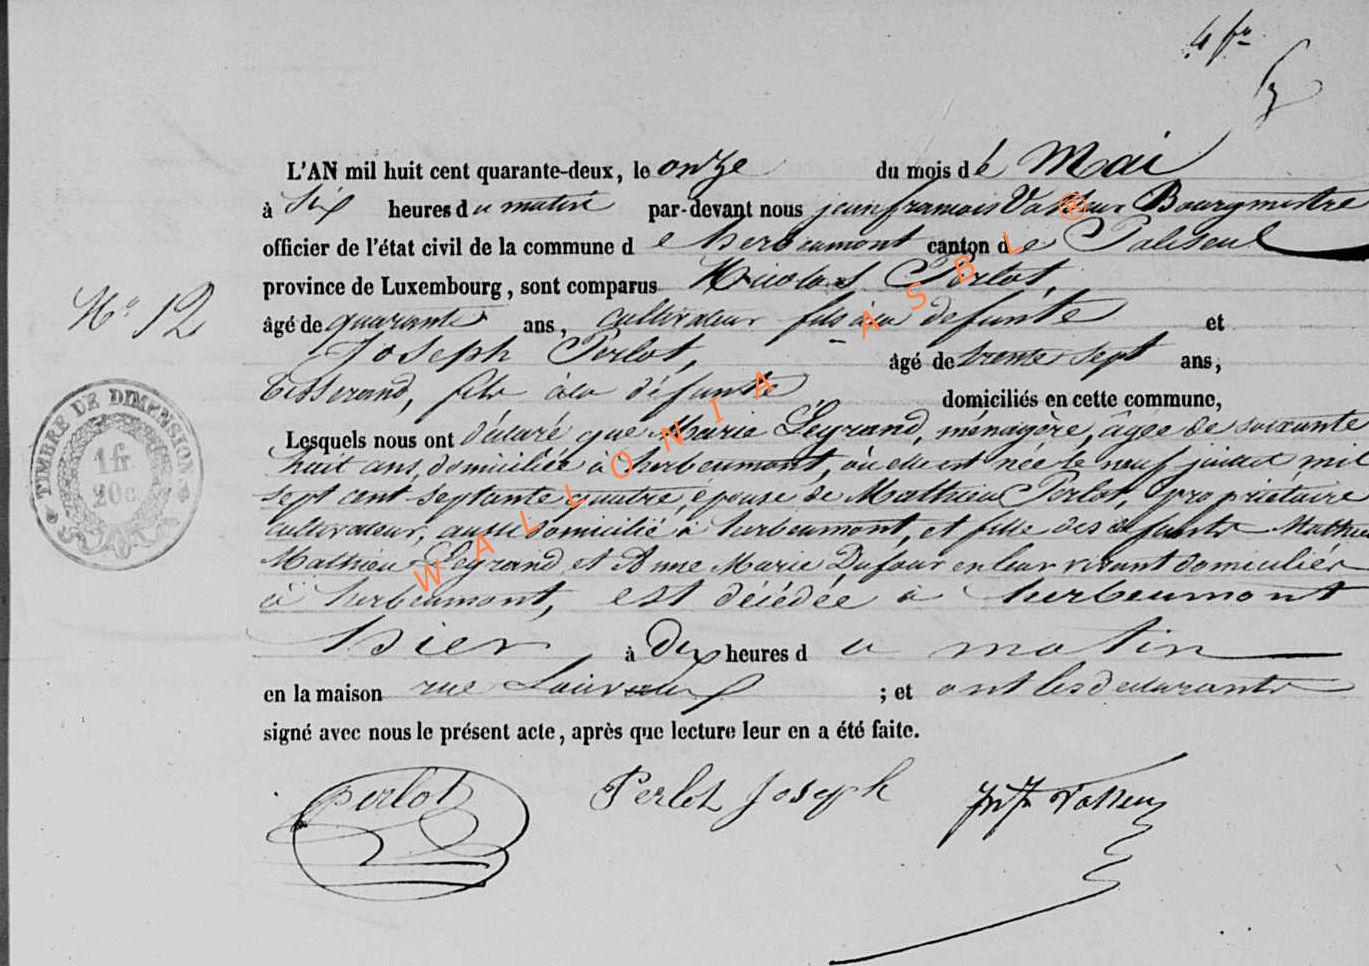 4 fr
L'AN mil huit cent quarante-deux, le onze du mois de Mai
à Six heures du matin par-devant nous jean françois Vasseur Bourgmestre
officier de l'état civil de la commune de herbeumont canton de Paliseul
province de Luxembourg, sont comparus Nicolas Perlot,
N° 12
âgé de quarante ans, cultivateur fils à la défunte et
Joseph Perlot, âgé de trente sept ans,
tisserand, fils à la défunte domiciliés en cette commune,
Lesquels nous ont déclaré que Marie Legrand, ménagère, âgée de soixante
huit ans, domiciliée à herbeumont, où elle est née le neuf juillet mil
sept cent septante quatre, épouse de Mathieu Perlot, propriétaire
cultivateur, aussi domicilié à herbeumont, et fille des défunts Mathieu
Mathieu Legrand et Anne Marie Dufour en leur vivant domiciliés
à herbeumont, est décédée à herbeumont
hier à dix heures du matin
en la maison rue ; et ont les déclarants
signé avec nous le présent acte, après que lecture leur en a été faite.
TIMBRE DE DIMENSION
1 fr.
20c.
perlot Perlot Joseph Vasseur
WALLONIA ASBL ®